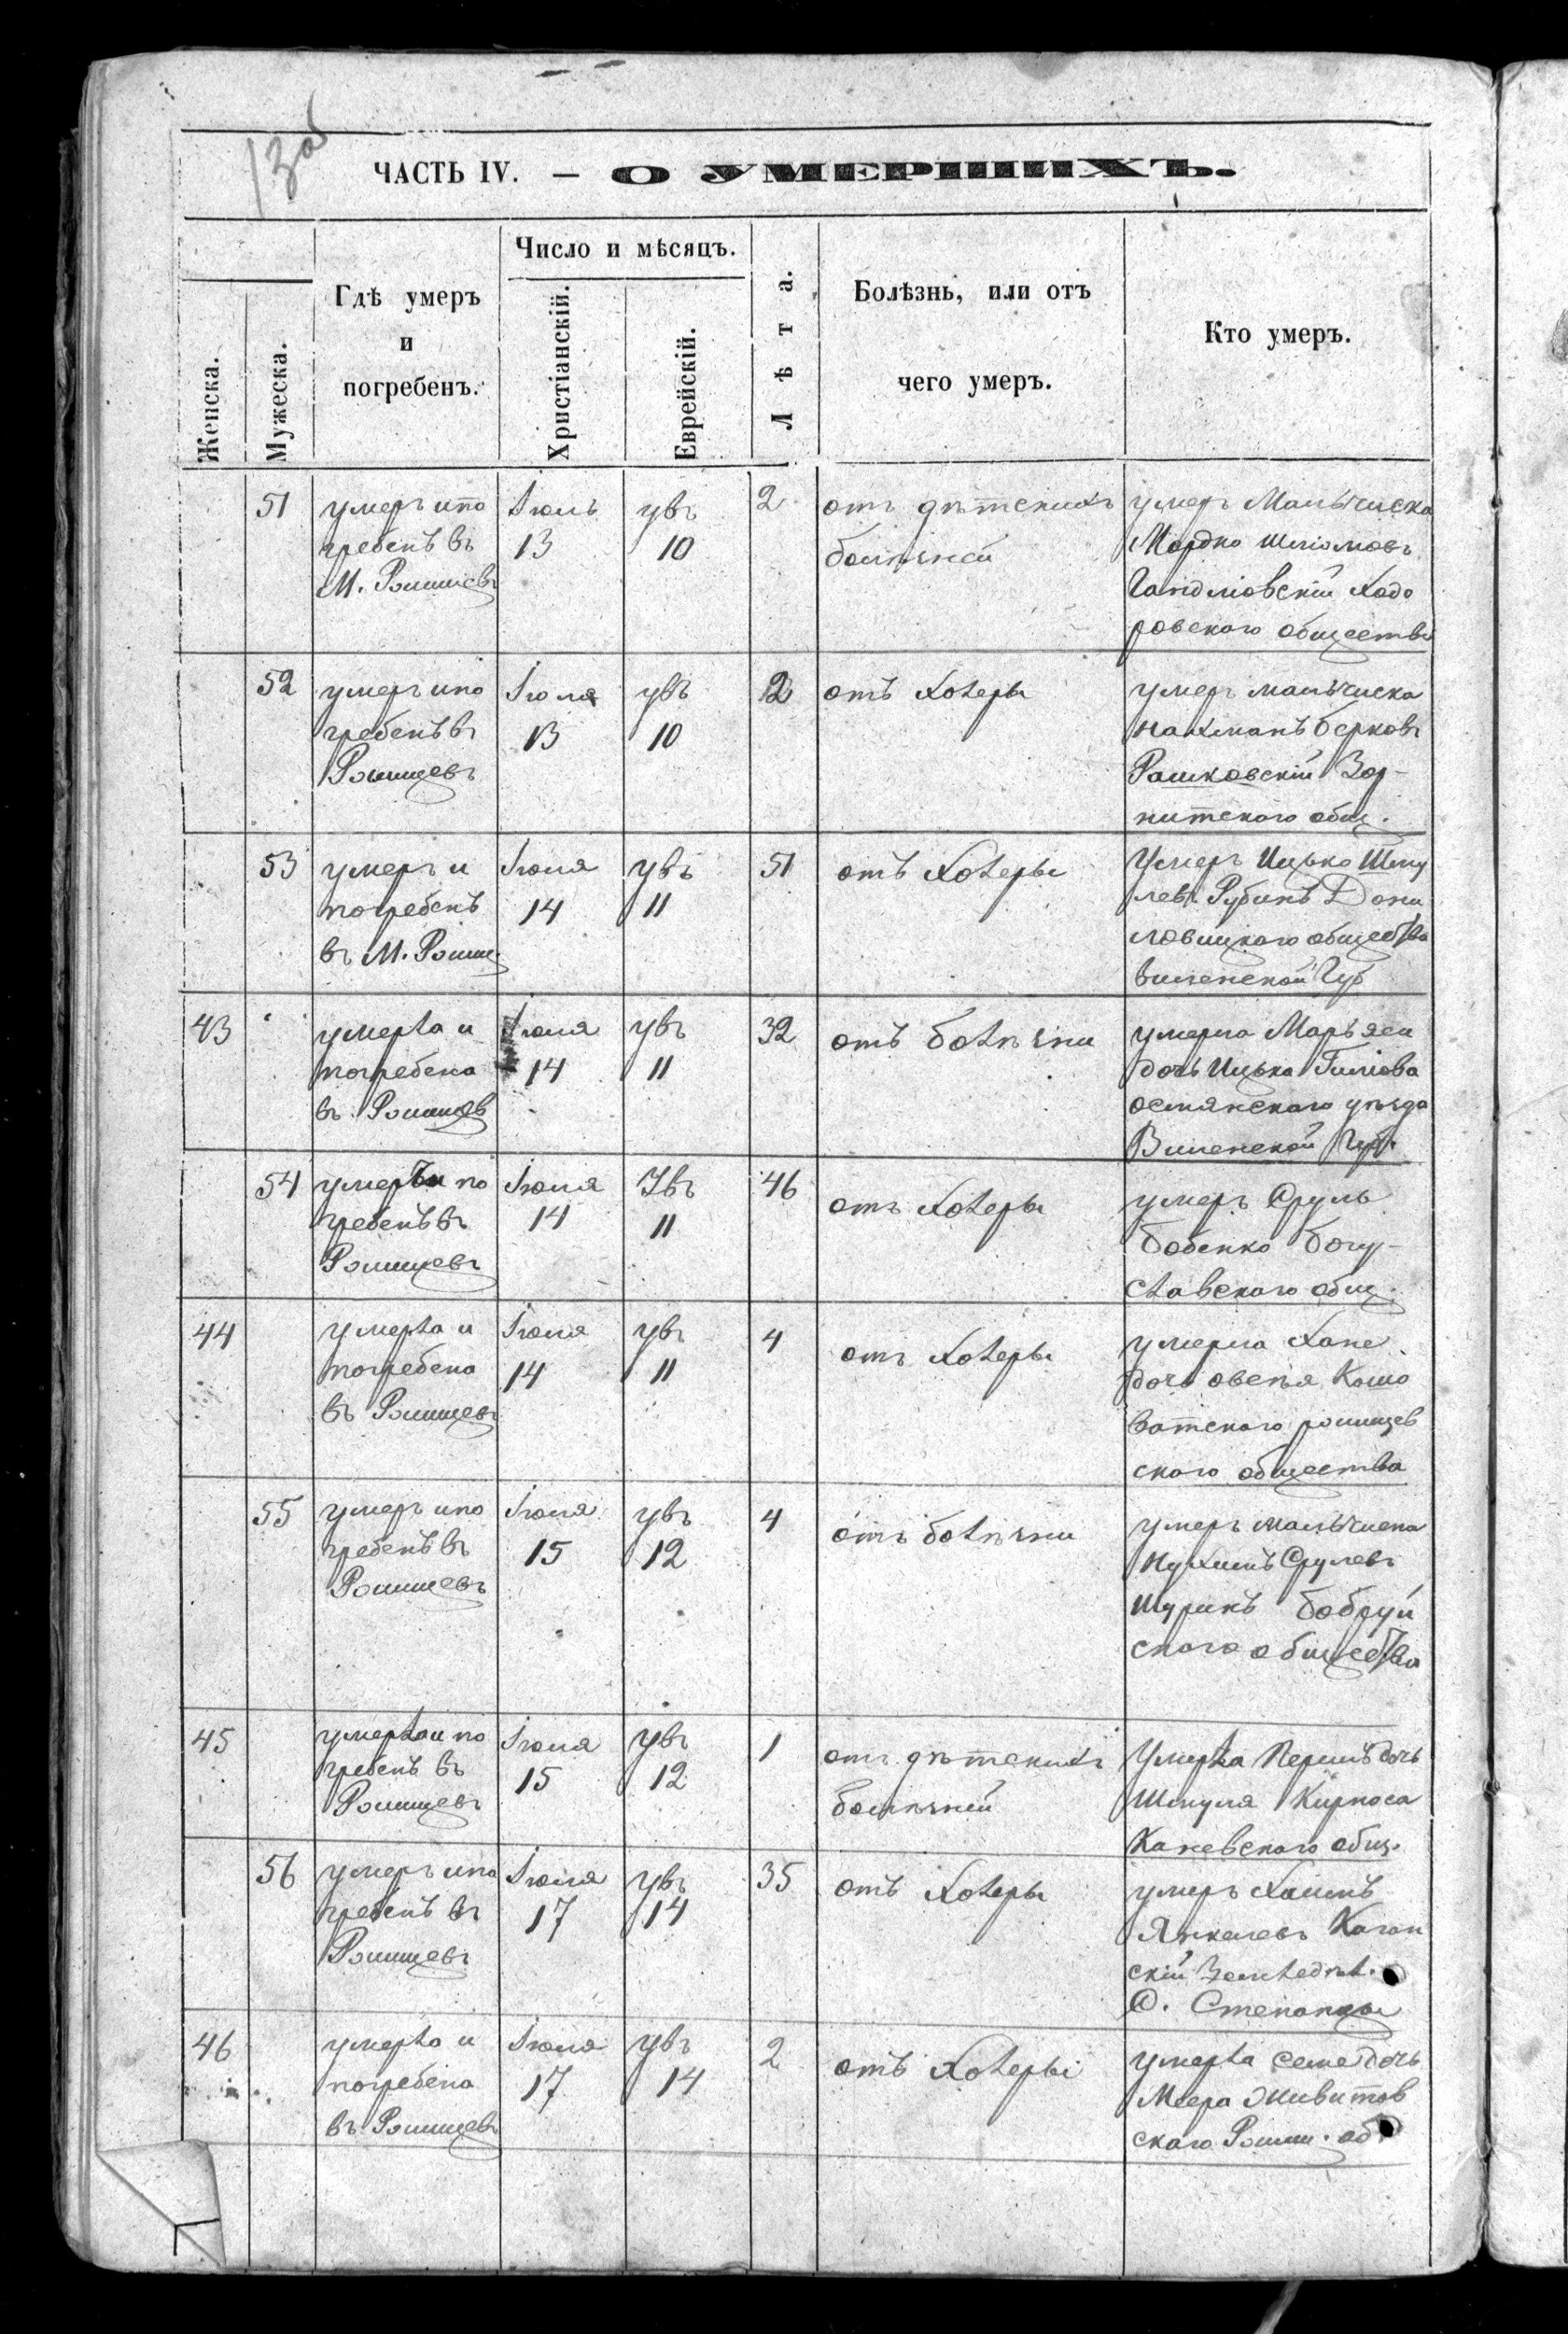 13об
ЧАСТЬ IV. — О УМЕРШИХЪ.
Женска.
Мужеска.
Гдѣ умеръ
и
погребенъ.
Число и мѣсяцъ.
Христіанскій.
Еврейскій.
Лѣта.
Болѣзнь, или отъ
чего умеръ.
Кто умеръ.
51
умеръ и по
гребенъ въ
М. Ромшевъ
Іюль
13
увъ
10
2
отъ дѣтскихъ
болѣзней
умеръ Мальчиска
Мордко Шліомовъ
Ходо
ровского общества
52
умеръ и по
гребенъ въ
Іюля
13
увъ
10
2
отъ Холеры
умеръ мальчиска
Нахманъ Берковъ
Рашковскій Зор-
нитского общ.
53
умеръ и
погребенъ
въ М.
Іюля
14
увъ
11
51
отъ Холеры
Умеръ Ицько Шму
левъ Рубинъ Дони
ловицкого общества
Виленской Губ
43
умерла и
погребена
въ
Іюля
14
увъ
11
32
отъ болѣзни
умерла Марьяси
дочь Ицька
осмянского уѣзда
Виленской Губ.
54
умеръ и по
гребенъ въ
Іюля
14
Увъ
11
46
отъ Холеры
умеръ Сруль
Бабенко Богу-
славского общ.
44
умерла и
погребена
въ
Іюля
14
увъ
11
4
отъ Холеры
умерла Хане
дочь овсѣя Кошо
ватского
ского общества
55
умеръ и по
гребенъ въ
Іюля
15
увъ
12
4
отъ болѣзни
умеръ мальчиска
Нухимъ Срулевъ
Шурикъ Бобруй
ского общества
45
умерла и по
гребенъ въ
Іюля
15
увъ
12
1
отъ дѣтскихъ
болѣзней
Умерла Перлъ дочь
Шмуля Кирноса
Каневского общ.
56
умеръ и по
гребенъ въ
Іюля
17
увъ
14
35
отъ Холеры
умеръ Хаимъ
Янкелевъ Каган
скій Земледѣл.
С. Степанцы
46
умерла и
погребена
въ
Іюля
17
увъ
14
2
отъ Холеры
умерла Семе дочь
Меера Живитов
скаго об